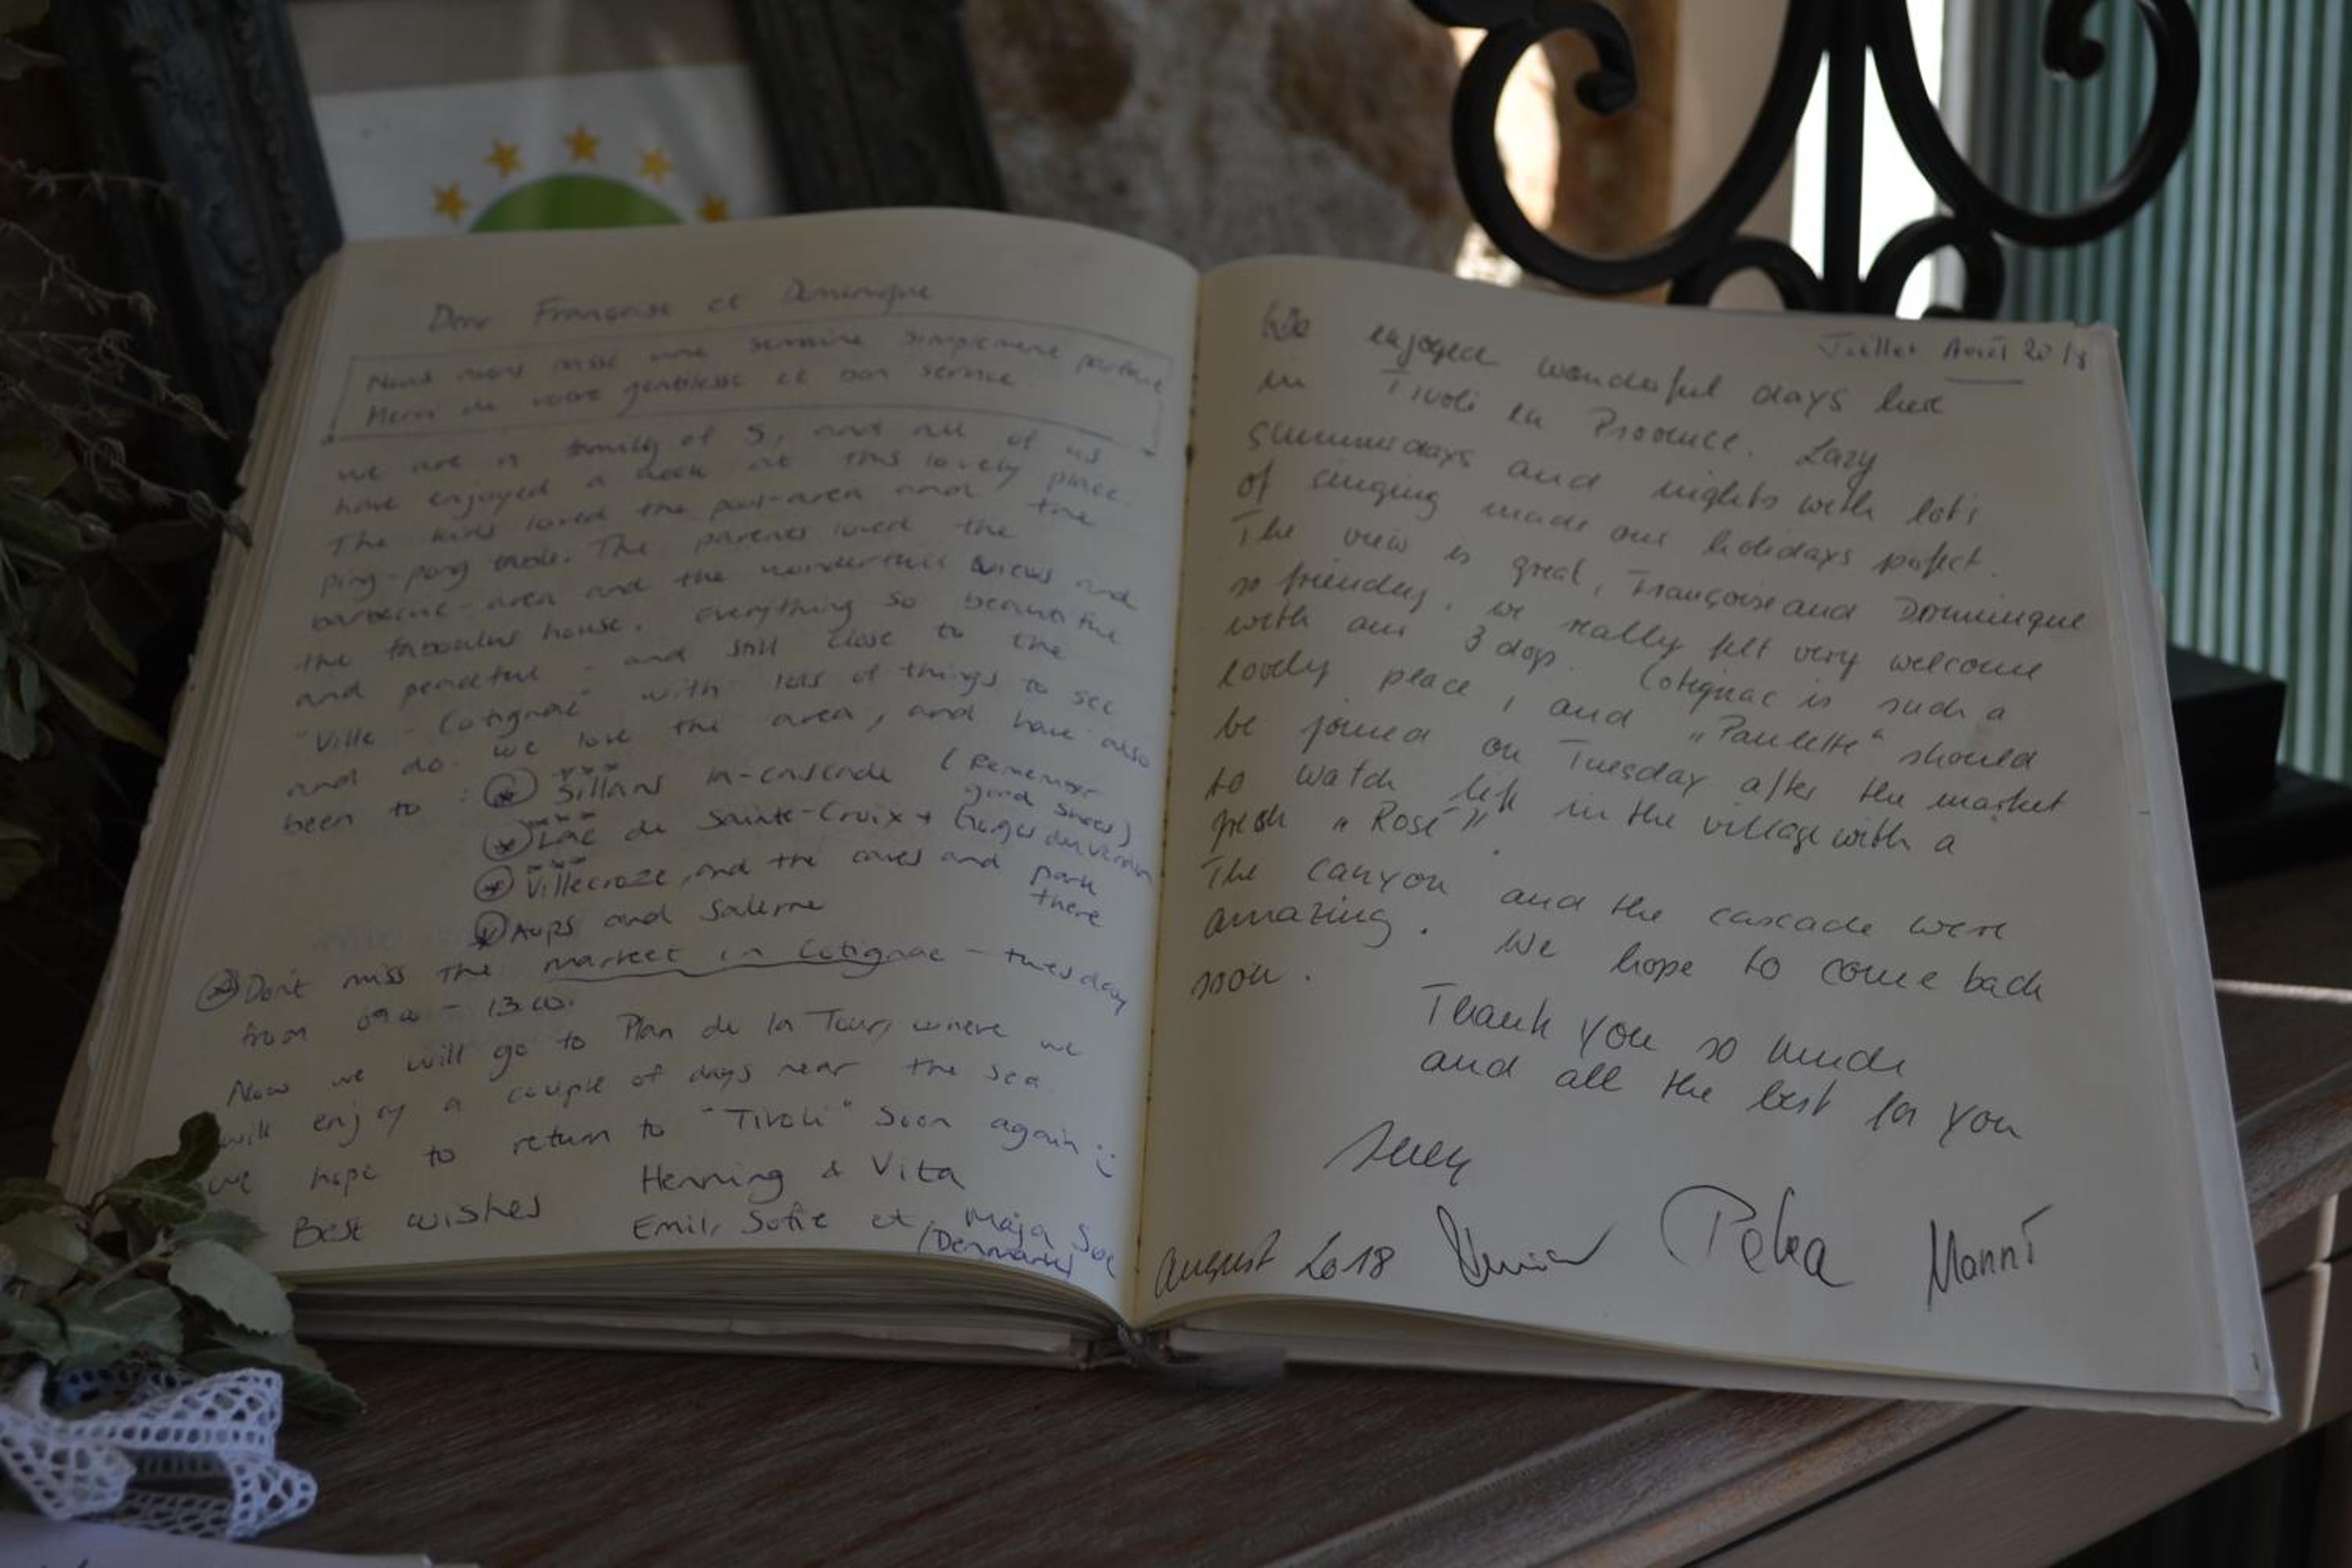 Dear Françoise et Dominique
Nous avons passé une semaine simplement parfaite
Merci de votre gentilesse et bon service
We are a family of 5, and all of us
have enjoyed a week at this lovely place.
The kids loved the pool-area and the
ping-pong table. The parents loved the
barbecue-area and the wonderfull views and
the faboulus house. Everything so beautiful
and peaceful - and still close to the
"Ville - Cotignac" with lots of things to see
and do. We love the area, and have also
been to : Sillans la-cascade (Remember
good shoes)
Lac de Sainte-Croix + Gorges du Verdon
Villecroze, and the caves and park
there
Aups and Salerne
Dont miss the market in Cotignac - tuesday
from 09.00 - 13.00.
Now we will go to Plan de la Tour, where we
will enjoy a couple of days near the sea.
We hope to return to "Tivoli" soon again :)
Best wishes Henning & Vita
Emil, Sofie et Maja Soe
(Denmark)
Juillet Août 2018
We enjoyed wonderful days here
in Tivoli in Provence. Lazy
summerdays and nights with lots
of singing made our holidays pefect.
The view is great, Françoise and Dominique
so friendly, we really felt very welcome
with our 3 dogs. Cotignac is such a
lovely place, and "Paulette" should
be joined on Tuesday after the market
to watch life in the village with a
fresh "Rosé".
The canyon and the cascade were
amazing. We hope to come back
soon.
Thank you so much
and all the best for you
August 2018 Petra Manni